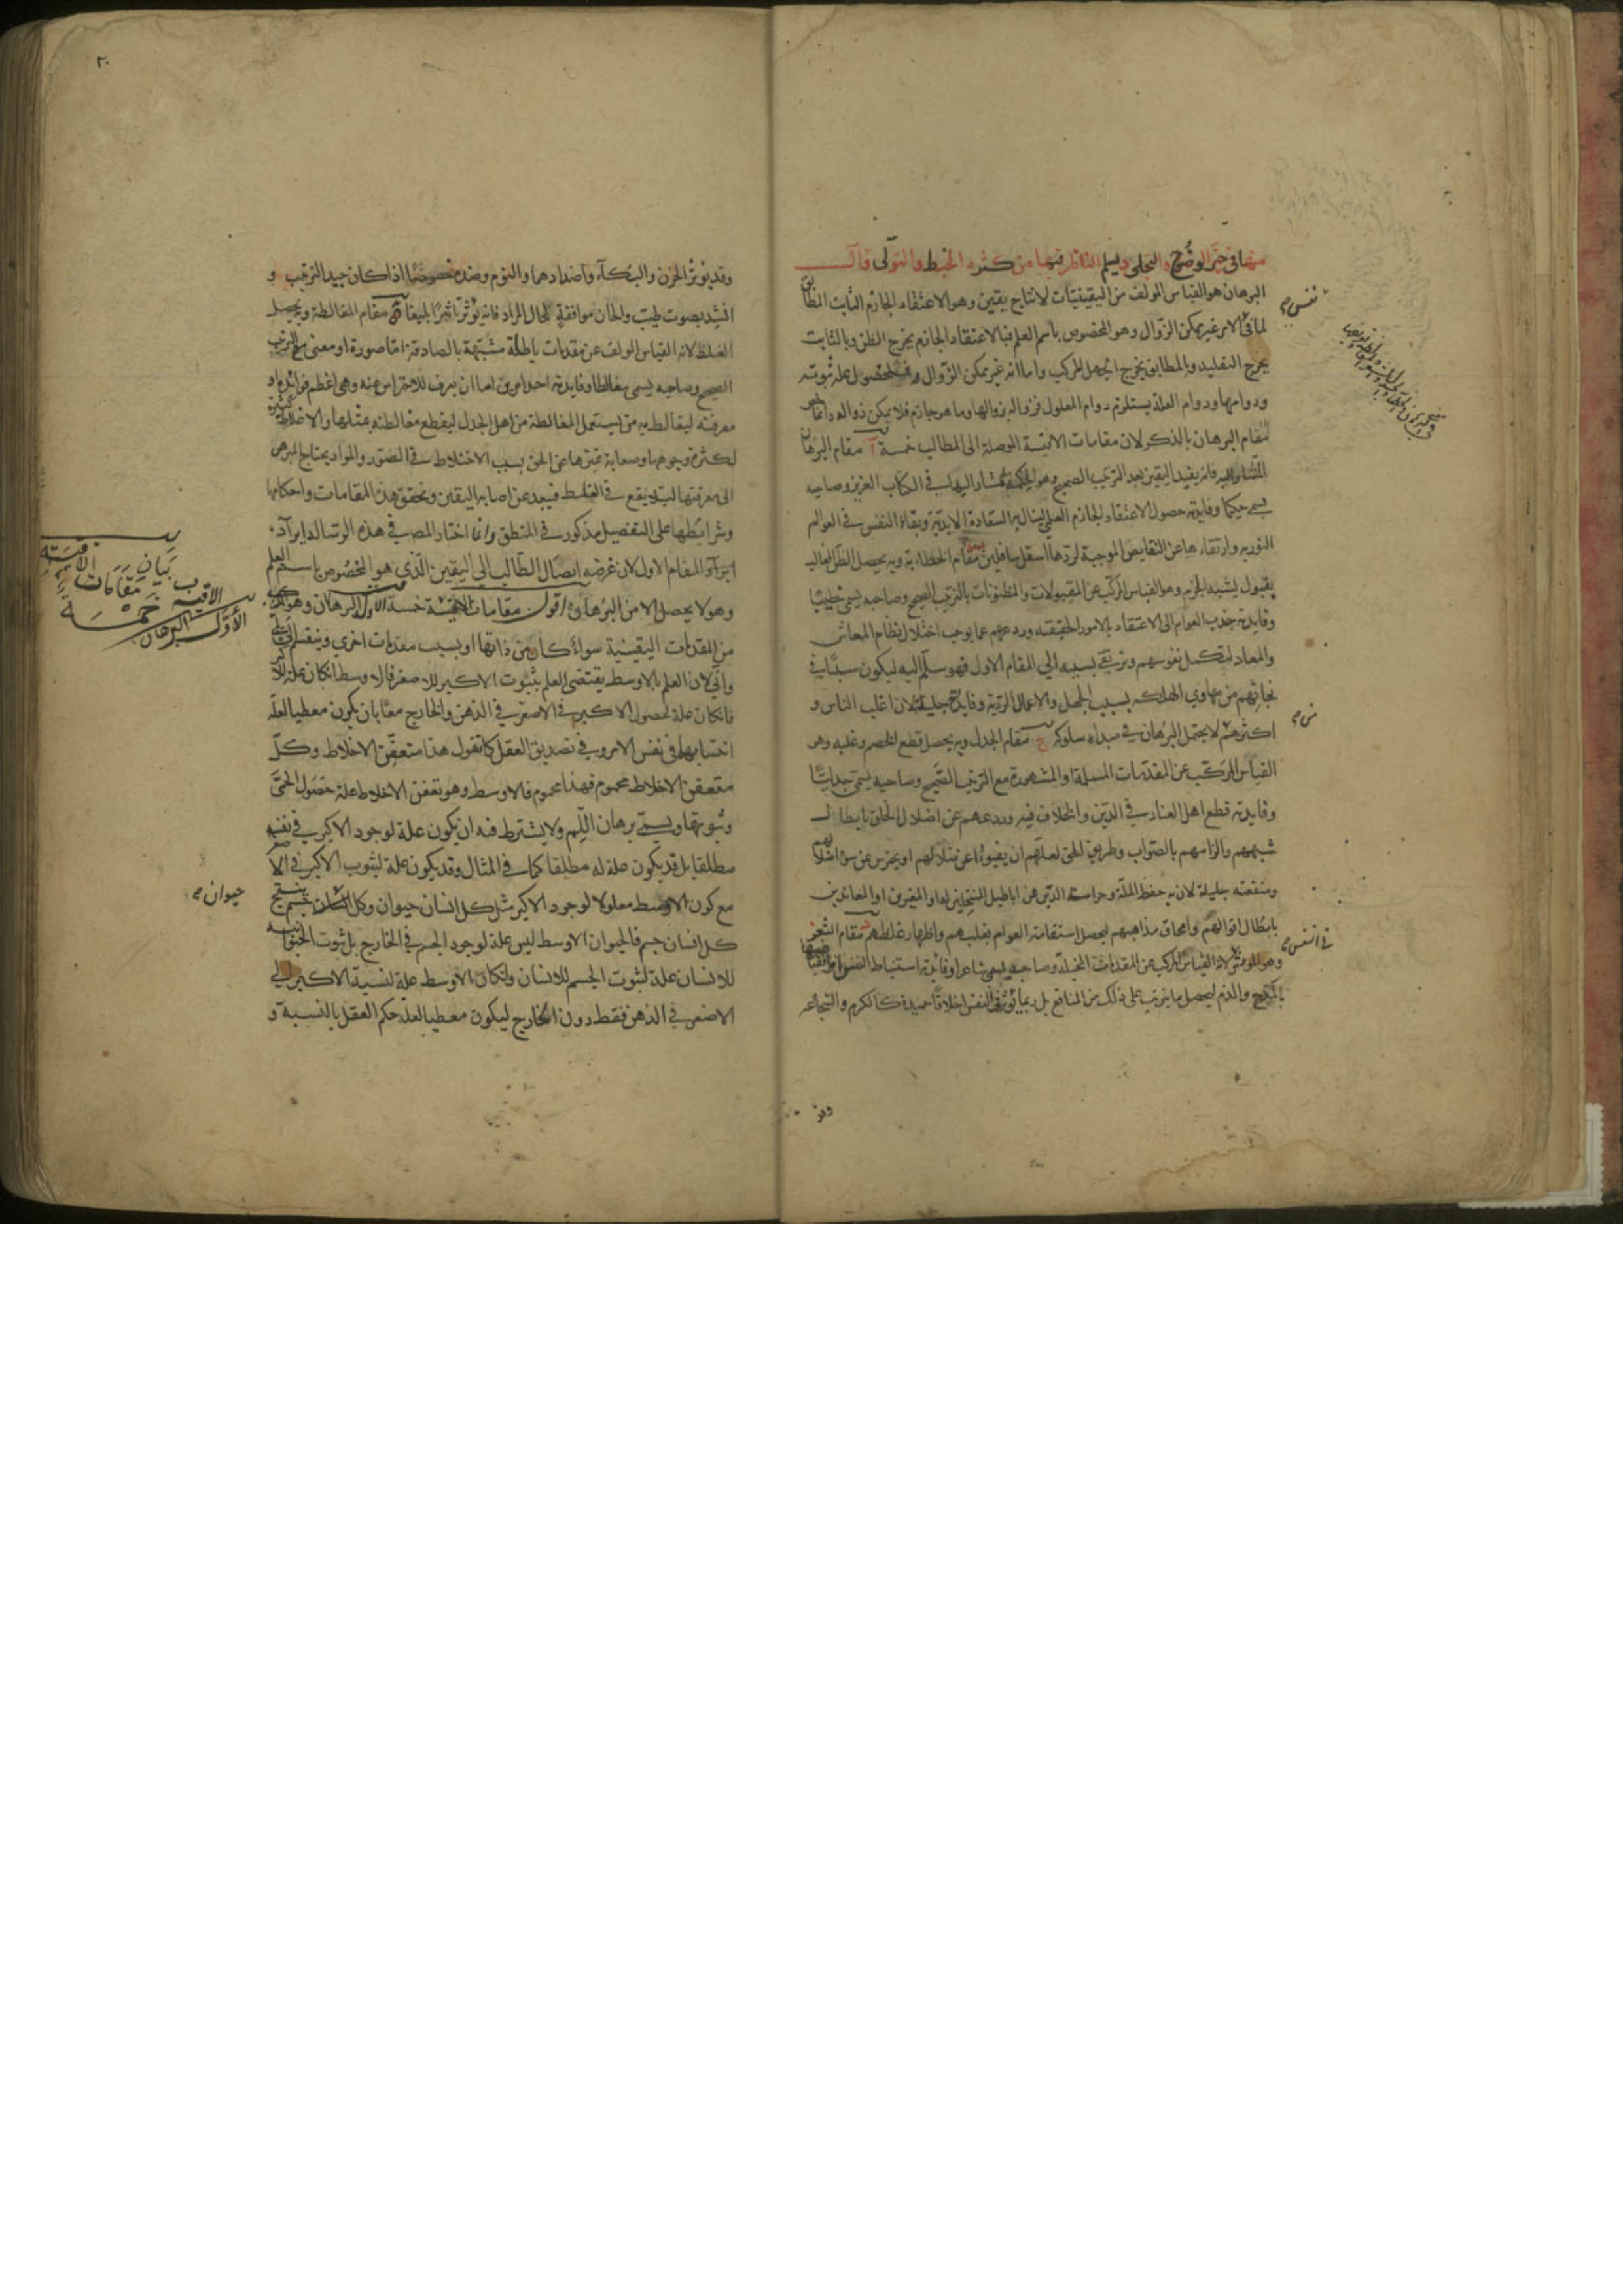 منها في حيّز الوضوح والتجلي وليسلم الناظر فيها من كثرة الخبط والتولى قال
البرهان هو القياس المولف من اليقينيّات لانتاج يقين وهو الاعتقاد الجازم الثابت المطابق
لما في الامر غير ممكن الزوال وهو المخصوص باسم العلم فبالاعتقاد الجازم يخرج الظن وبالثابت
يخرج التقليد وبالمطابق يخرج الجهل المركب واما انه غير ممكن الزوال لحصول علة ثبوته
ودوامها ودوام العلة يستلزم دوام المعلول فزواله بزوالها وما هو جازم فلا يمكن زواله دائما
مقام البرهان بالذكر لان مقامات الاقيسة الموصلة الى المطالب خمسة آ مقام البرهان
فانه يفيد اليقين بعد الترتيب الصحيح وهو الحكمة المشار اليها في الكتاب العزيز وصاحبه
يسمى حكيما وفايدته حصول الاعتقاد الجازم العلمي لينال به السعادة الابديّة وبقاء النفس في العوالم
النوريه وارتقاءها عن النقايص الموجبة لردها اسفل سافلين مقام الخطابة وبه يحصل الظن الغالب
بقبول يشبه الجزم وهو القياس المركب عن المقبولات والمظنونات بالترتيب الصحيح وصاحبه يسمى خطيبا
وفايدته جذب العوام الى الاعتقاد بالامور الحقيقيه وردعهم عما يوجب اختلال نظام المعاش
والمعاد لتكمل نفوسهم وترتقى بسببه الى المقام الاول فهو سلّم اليه ليكون سببًا في
نجاتهم من مهاوي الهلكه بسبب الجهل والاعمال الرديّة وفايدته جليلة لان اغلب الناس و
اكثرهم لا يحتمل البرهان في مبداء سلوكه ج مقام الجدل وبه يحصل قطع الخصم وغلبه وهو
القياس المركّب عن المقدمات المسلمة او المشهورة مع الترتيب الصّحيح وصاحبه يسمّى جدليًّا
وفايدته قطع اهل العناد في الدّين والخلاف فيه وردعهم عن اضلال الخلق بابطال
شبههم والزامهم بالصّواب وطريق الحق لعلهم ان يفيوا عن ضلالهم او يحترس من سوء اضلالهم
ومنفعته جليلة لان به حفظ الملّة وحراسة الدّين عن اباطيل المنتحلين له او المغيرين او المعاندين
بابطال اقوالهم وامحاق مذاهبهم ليحصل استقامة العوام بغلبهم واظهار غلطهم مقام الشعر
وهو المؤثر لانه القياس المركب عن المقدمات المخيلة وصاحبه يسمى شاعرا وفائدته استنباط النفس
بالمدح والذم ليحصل ما يترتب على ذلك من المنافع بل ربما يؤثر في النفس اخلاقًا حميدة كالكرم والشجاعه
نفس
في النفس
وقد
٢٠
وقد يؤثر الحزن والبكآء واضدادهما والنوم وضده خصوصًا اذا كان جيد الترتيب و
انشد بصوت طيب والحان موافقة للحال المراد فانه يؤثر تاثيرًا بليغا ة مقام المغالطة ويحصل
الغلط لانه القياس المولف عن مقدمات باطلة مشبّهة بالصادقة امّا صورة او معنى مع الترتيب
الصحيح وصاحبه يسمى مغالطا وفايدته احد امرين اما ان يعرف للاحتراس عنه وهى اعظم فوائده او
معرفته ليغالط به من يستعمل المغالطة من اهل الجدل ليقطع مغالطته بمثلها والاغلاط كثيرة
لكثرة وجوهها وصعابة تميزها عن الحق بسبب الاختلاط في الصّور والمواد يحتاج المبرهن
الى معرفتها لئلا يقع في الغلط فيبعد عن اصابة اليقين وتحقق هذه المقامات واحكامها
وشرائطها على التفصيل مذكور في المنطق وانما اختار المصـ في هذه الرسالة ايرآد
ايرآد المقام الاول لان غرضه ايصال الطّالب الى اليقين الّذي هو المخصُوص باسم العلم
وهو لا يحصل الا من البرهان اقول مقامات الاقيسة خمسة الاول البرهان وهو المركب
من المقدمات اليقينية سواء كان من ذاتها او بسبب مقدمات اخرى وينقسم الى لمّي
وانّي لان العلم بالاوسط يقتضى العلم بثبوت الاكبر للاصغر فالاوسط ان كان علة
فان كان علة لحصول الاكبر في الاصغر في الذهن والخارج معًا بان يكون معطيا لعلة
انتسابها في نفس الامر وفي تصديق العقل كما تقول هذا متعفّن الاخلاط وكلّ
متعفن الاخلاط محموم فهذا محموم فالاوسط وهو تعفن الاخلاط علة حصُول الحمّى
وثبوتها ويسمّى برهان اللّم ولا يشترط فيه ان يكون علة لوجود الاكبر في نفسه
مطلقا بل قد يكون علة له مطلقا كما في المثال وقد يكون علة لثبوت الاكبر في الاصغر
مع كون الاوسط معلولا لوجود الاكبر مثل كل انسان حيوان وكل جسم ينتج
كل انسان جسم فالحيوان الاوسط ليس علة لوجود الجسم في الخارج بل ثبوت الحيوانية
للانسان علة لثبوت الجسم للانسان وان كان الاوسط علة لنسبة الاكبر الى
الاصغر في الذهن فقط دون الخارج ليكون معطيا لعلة حكم العقل بالنسبة و
بَيَان مقامات الاقيسة
الاقيسه خمسة
الأوّل البرهان
حيوان